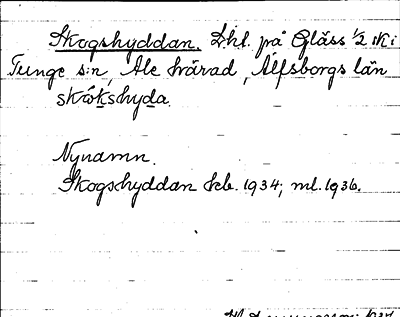 Skogshyddan. Lht. på Gläss 1/2 mtl i
Tunge s:n, Ale härad, Älfsborgs län
skókshyda
Nynamn.
Skogshyddan Jeb. 1934; ml. 1936.